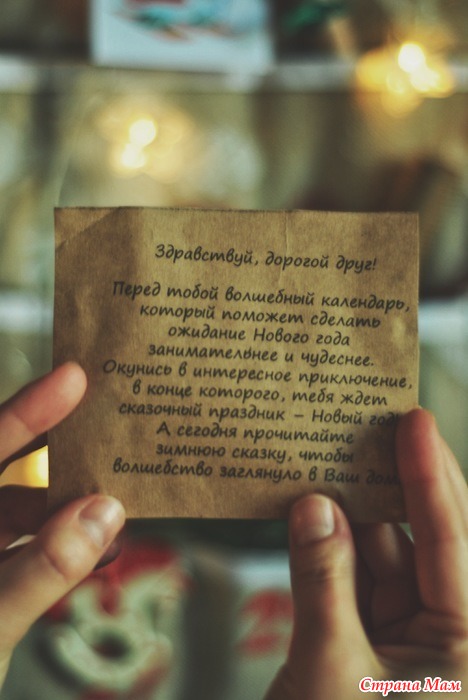 Здравствуй, дорогой друг!
Перед тобой волшебный календарь,
который поможет сделать
ожидание Нового года
занимательнее и чудеснее.
Окунись в интересное приключение,
в конце которого, тебя ждет
сказочный праздник – Новый год!
А сегодня прочитайте
зимнюю сказку, чтобы
волшебство заглянуло в Ваш дом.
Страна Мам